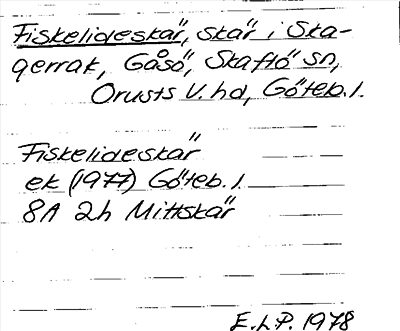 Fiskelideskär, skär i Ska-
gerrak, Gåsö, Skaftö sn,
Orusts V. hd, Göteb. l.
Fiskelideskär
ek (1977) Göteb. l.
8A 2h Mittskär
E.L.P. 1978